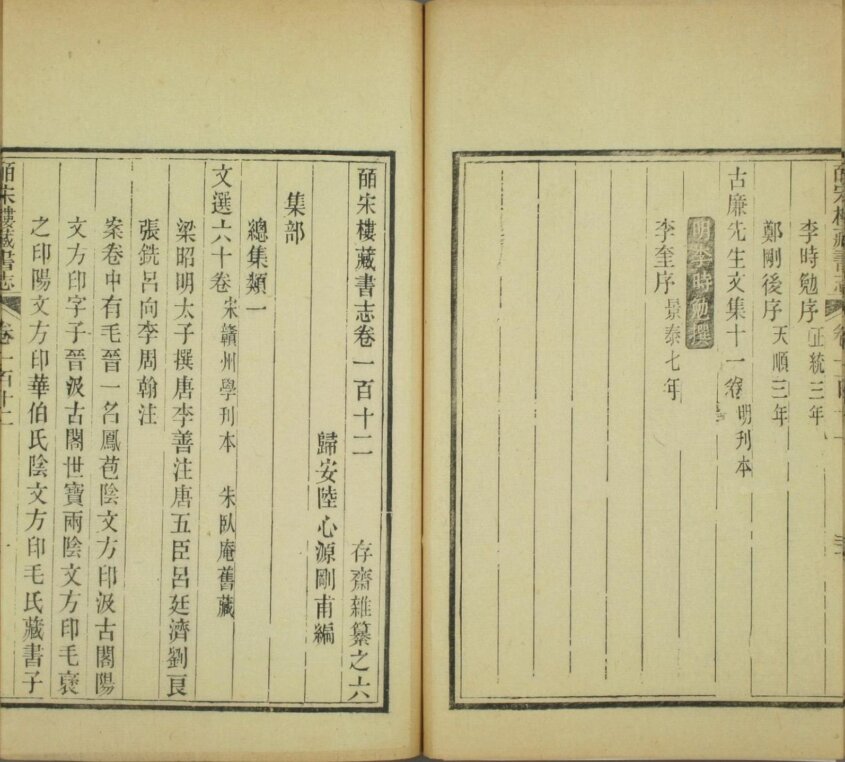 李時勉序正統三年
鄭剛後序天順三年
古廉先生文集十一卷明刊本
明李時勉撰
李奎序景泰七年
皕宋樓藏書志卷一百十二　存齋雜纂之六
歸安陸心源剛甫編
集部
總集類一
文選六十卷宋贛州學刊本　朱臥庵舊藏
梁昭明太子撰唐李善注唐五臣呂延濟劉良
張銑呂向李周翰注
案卷中有毛晉一名鳳苞陰文方印汲古閣陽
文方印字子晉汲古閣世寶兩陰文方印毛褒
之印陽文方印華伯氏陰文方印毛氏藏書子
皕宋樓藏書志　卷一百十二　一